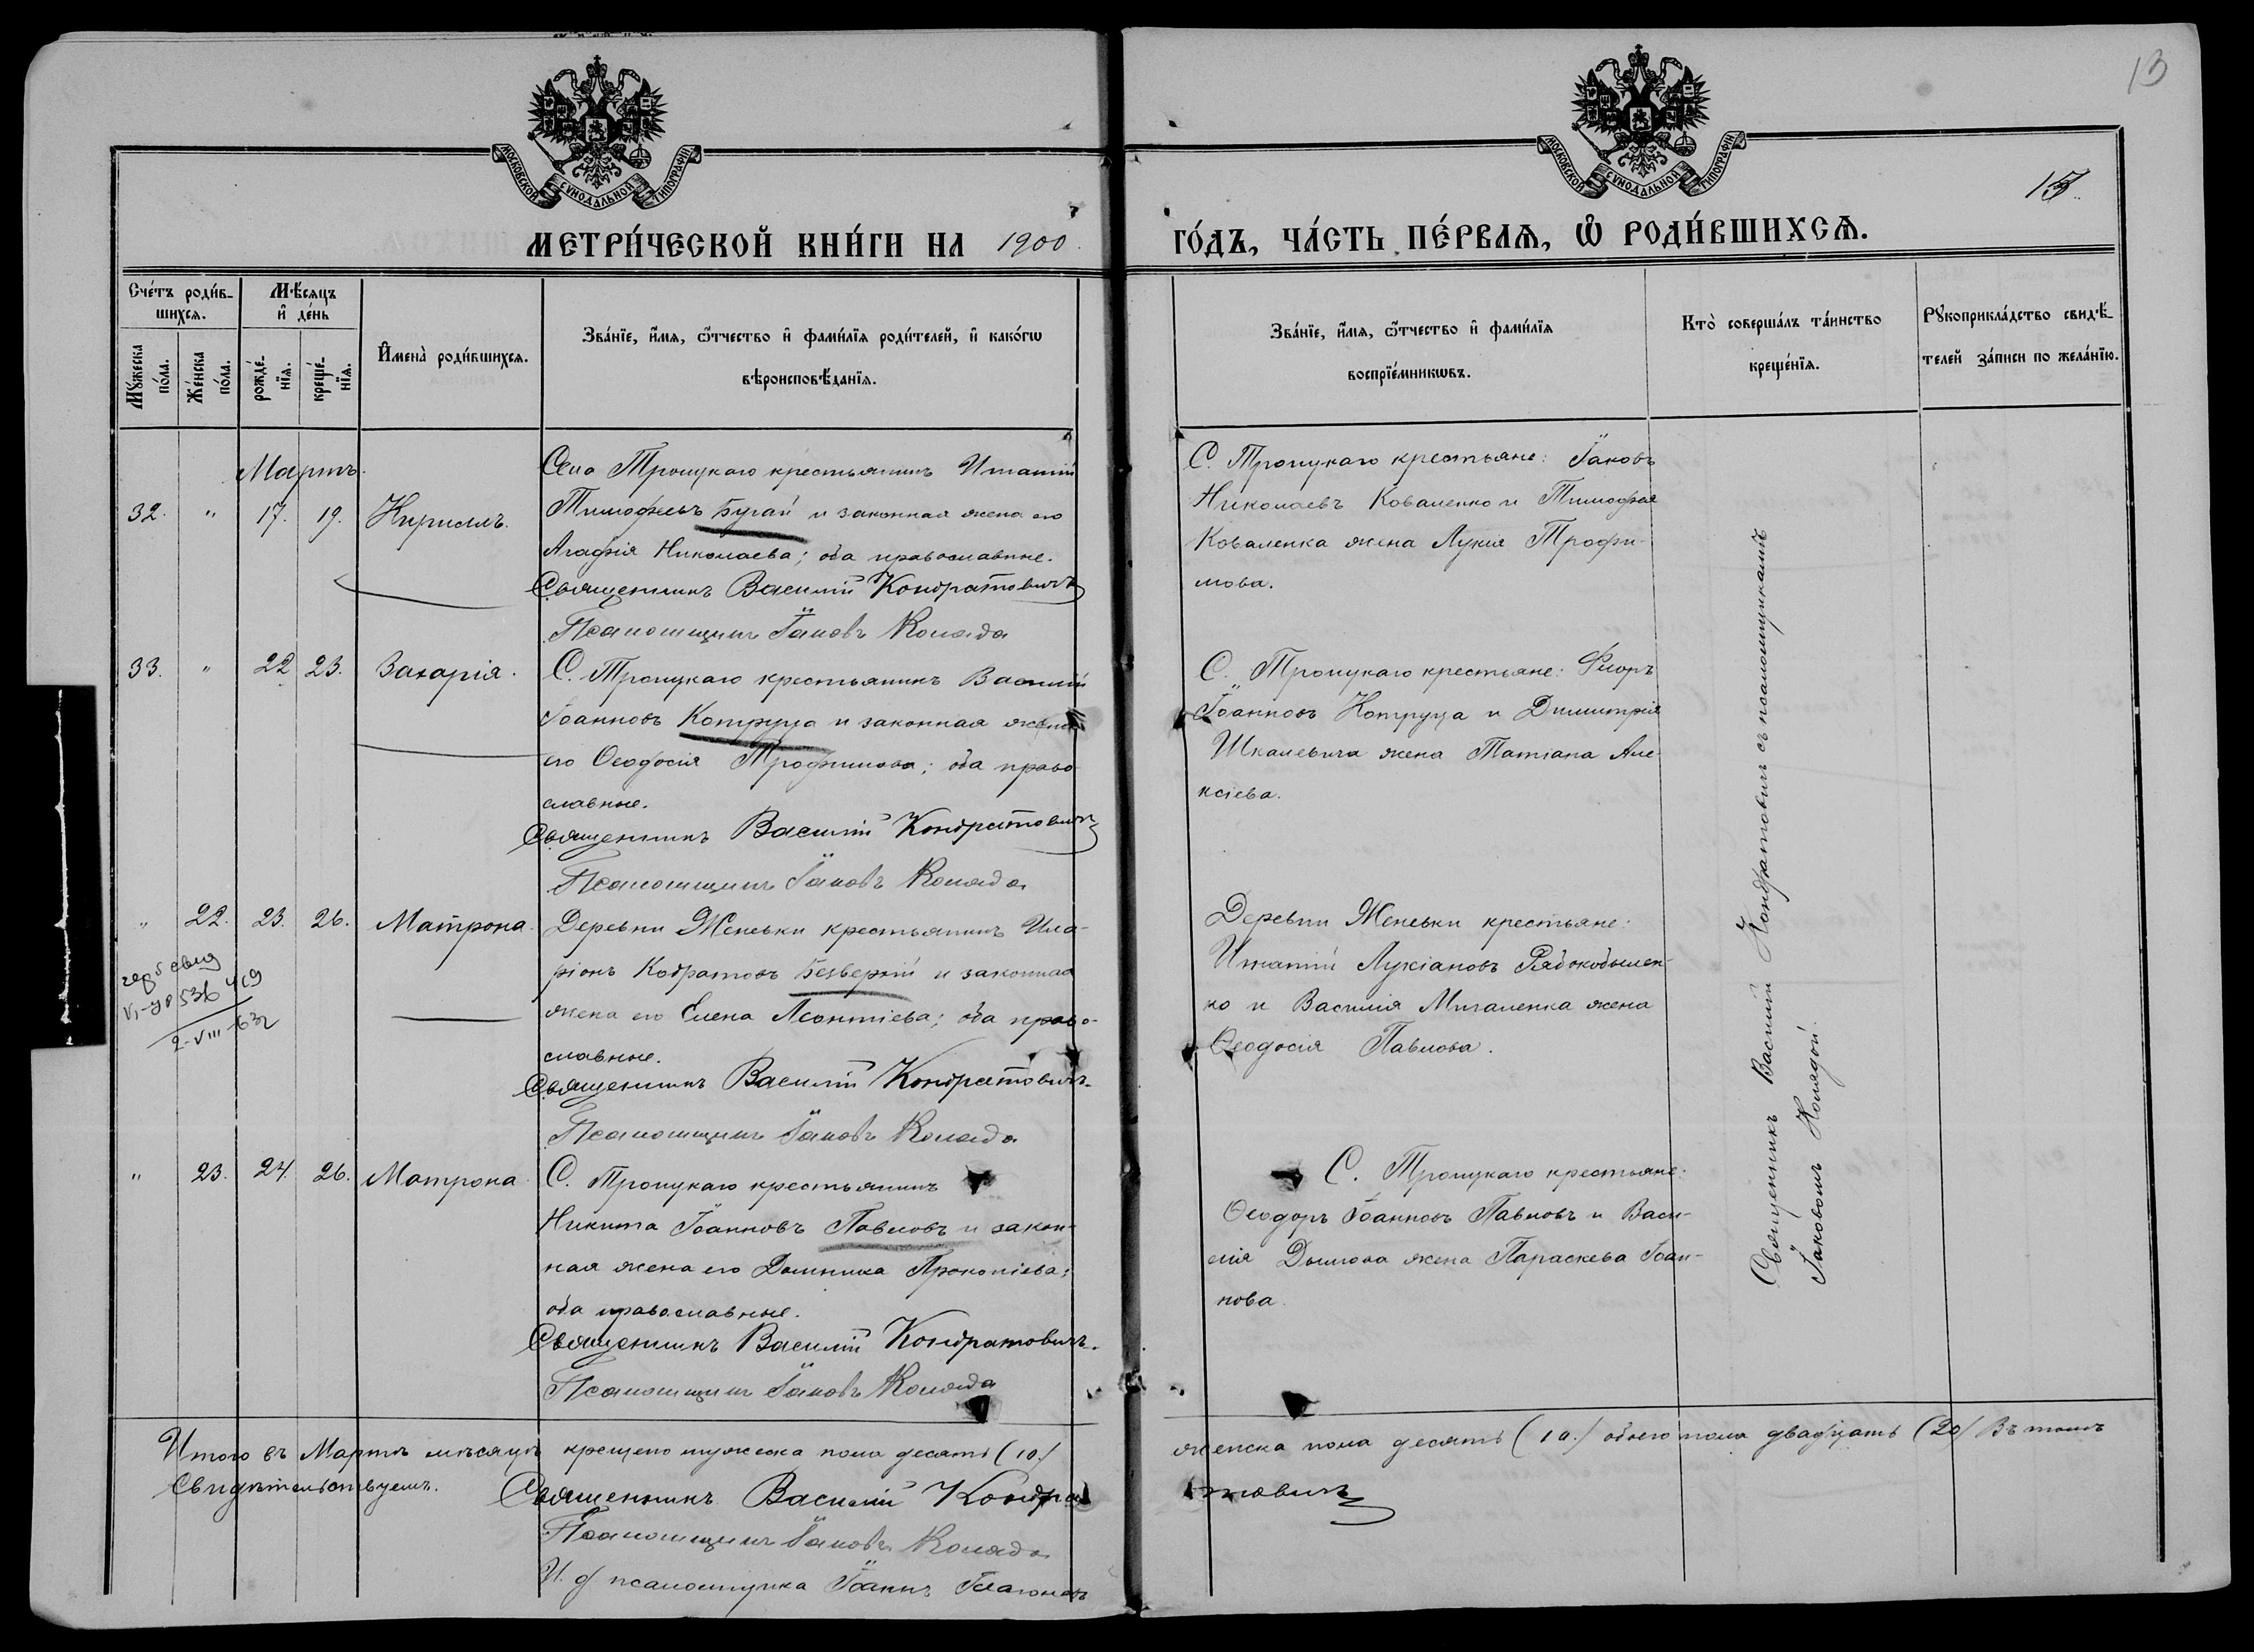 13
МОСКОВСКОЙ СѴНОДАЛЬНОЙ ТИПОГРАФІИ
МОСКОВСКОЙ СѴНОДАЛЬНОЙ ТИПОГРАФІИ
13.
МЕТРИ́ЧЕСКОЙ КНИ́ГИ НА 1900. ГО́ДЪ, ЧА́СТЬ ПЕ́РВАѦ, Ѡ҆ РОДИ́ВШИХСѦ.
Сче́тъ роди́в-
шихсѧ.
Мꙋ́жеска
по́ла.
Же́нска
по́ла.
Мѣ́сѧцъ
и҆ де́нь
рожде́-
нїѧ.
креще́-
нїѧ.
И҆мена̀ роди́вшихсѧ.
Зва́нїе, и҆́мѧ, ѻ҆́тчество и҆ фами́лїѧ роди́телей, и҆ како́гѡ
вѣроисповѣ́данїѧ.
Зва́нїе, и҆́мѧ, ѻ҆́тчество и҆ фами́лїѧ
воспрїе́мникѡвъ.
Кто̀ соверша́лъ та́инство
креще́нїѧ.
Рꙋкоприкла́дство свидѣ́-
телей за́писи по жела́нїю.
Мартъ.
32. " 17. 19. Кириллъ.
Села Троицкаго крестьянинъ Игнатій
Тимофеевъ Бугай и законная жена его
Агафія Николаева; оба православные.
Священникъ Василій Кондратовичъ
Псаломщикъ Іаковъ Коляда
С. Троицкаго крестьяне: Іаковъ
Николаевъ Коваленко и Тимофея
Коваленка жена Лукія Трофи-
мова.
33. " 22. 23. Захарія.
С. Троицкаго крестьянинъ Василій
Іоанновъ Котруца и законная жена
его Ѳеодосія Трофимова; оба право-
славные.
Священникъ Василій Кондратовичъ
Псаломщикъ Іаковъ Коляда
С. Троицкаго крестьяне: Флоръ
Іоанновъ Котруца и Димитрія
Шкалевича жена Татіана Але-
ксіева.
" 22. 23. 26. Матрона.
Деревни Женевки крестьянинъ Ила-
ріонъ Кодратовъ Безверхій и законная
жена его Елена Леонтіева; оба право-
славные.
Священникъ Василій Кондратовичъ
Псаломщикъ Іаковъ Коляда
2-VIII-63г
Деревни Женевки крестьяне:
Игнатій Лукіановъ Рябокобылен-
ко и Василія Мигаленка жена
Ѳеодосія Павлова.
" 23. 24. 26. Матрона.
С. Троицкаго крестьянинъ
Никита Іоанновъ Павловъ и закон-
ная жена его Домника Прокопіева;
оба православные.
Священникъ Василій Кондратовичъ.
Псаломщикъ Іаковъ Коляда
С. Троицкаго крестьяне:
Ѳеодоръ Іоанновъ Павловъ и Васи-
лія Дымова жена Параскева Іоан-
нова.
Священникъ Василій Кондратовичъ съ псаломщикомъ
Іаковомъ Колядой.
Итого въ Мартѣ мѣсяцѣ крещено мужеска пола десять (10.) женска пола десять (10.) обоего пола двадцать (20) Въ томъ
Свидѣтельствуемъ.
Священникъ Василій Кондратовичъ
Псаломщикъ Іаковъ Коляда
И. д псаломщика Іоаннъ